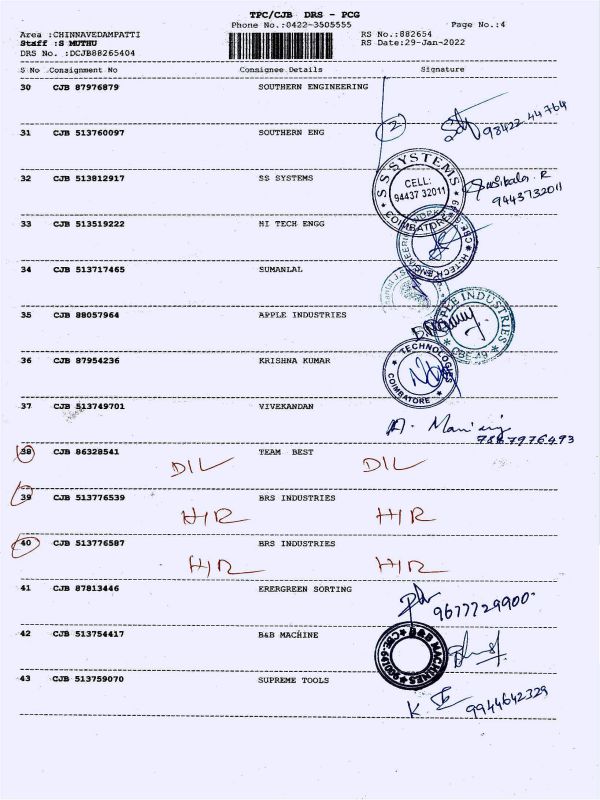 TPC/CJB DRS - PCG
Phone No.:0422-3505555
Page No.:4
Area :CHINNAVEDAMPATTI
RS No.:882654
Staff :S MUTHU
RS Date:29-Jan-2022
DRS No. :DCJB88265404
S No Consignment No Consignee Details Signature
30 CJB 87976879 SOUTHERN ENGINEERING
2 98422 44764
31 CJB 513760097 SOUTHERN ENG
32 CJB 513812917 SS SYSTEMS
S S SYSTEMS
CELL:
94437 32011
COIMBATORE
Sasikala. R
9443732011
33 CJB 513519222 HI TECH ENGG
34 CJB 513717465 SUMANLAL
35 CJB 88057964 APPLE INDUSTRIES
APPLE INDUSTRIES
CBE-49
36 CJB 87954236 KRISHNA KUMAR
TECHNOLOGIES
COIMBATORE
37 CJB 513749701 VIVEKANDAN
7867976493
38 CJB 86328541 TEAM BEST
DIL DIL
39 CJB 513776539 BRS INDUSTRIES
H/R H/R
40 CJB 513776587 BRS INDUSTRIES
H/R H/R
41 CJB 87813446 ERERGREEN SORTING
9677729900
42 CJB 513754417 B&B MACHINE
B&B MACHINES
43 CJB 513759070 SUPREME TOOLS
9944642329